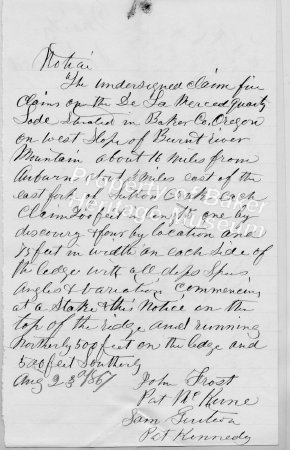 Notice
The undersigned claim five
Claims on the De La Merced Quartz
Lode Situated in Baker Co. Oregon
on west Slope of Burnt river
Mountain about 16 miles from
Auburn & about miles east of the
east fork of Creek each
Claim 200 feet in length one by
discovery & four by location and
75 feet in width on each side of
the ledge with all dips Spurs
angles & variation commencing
at a Stake & this Notice on the
top of the ridge and running
Northerly 500 feet on the ledge and
500 feet Southerly
Aug 23 1867
John Frost
Pat
Sam
Pat Kennedy
Property of Baker
Heritage Museum